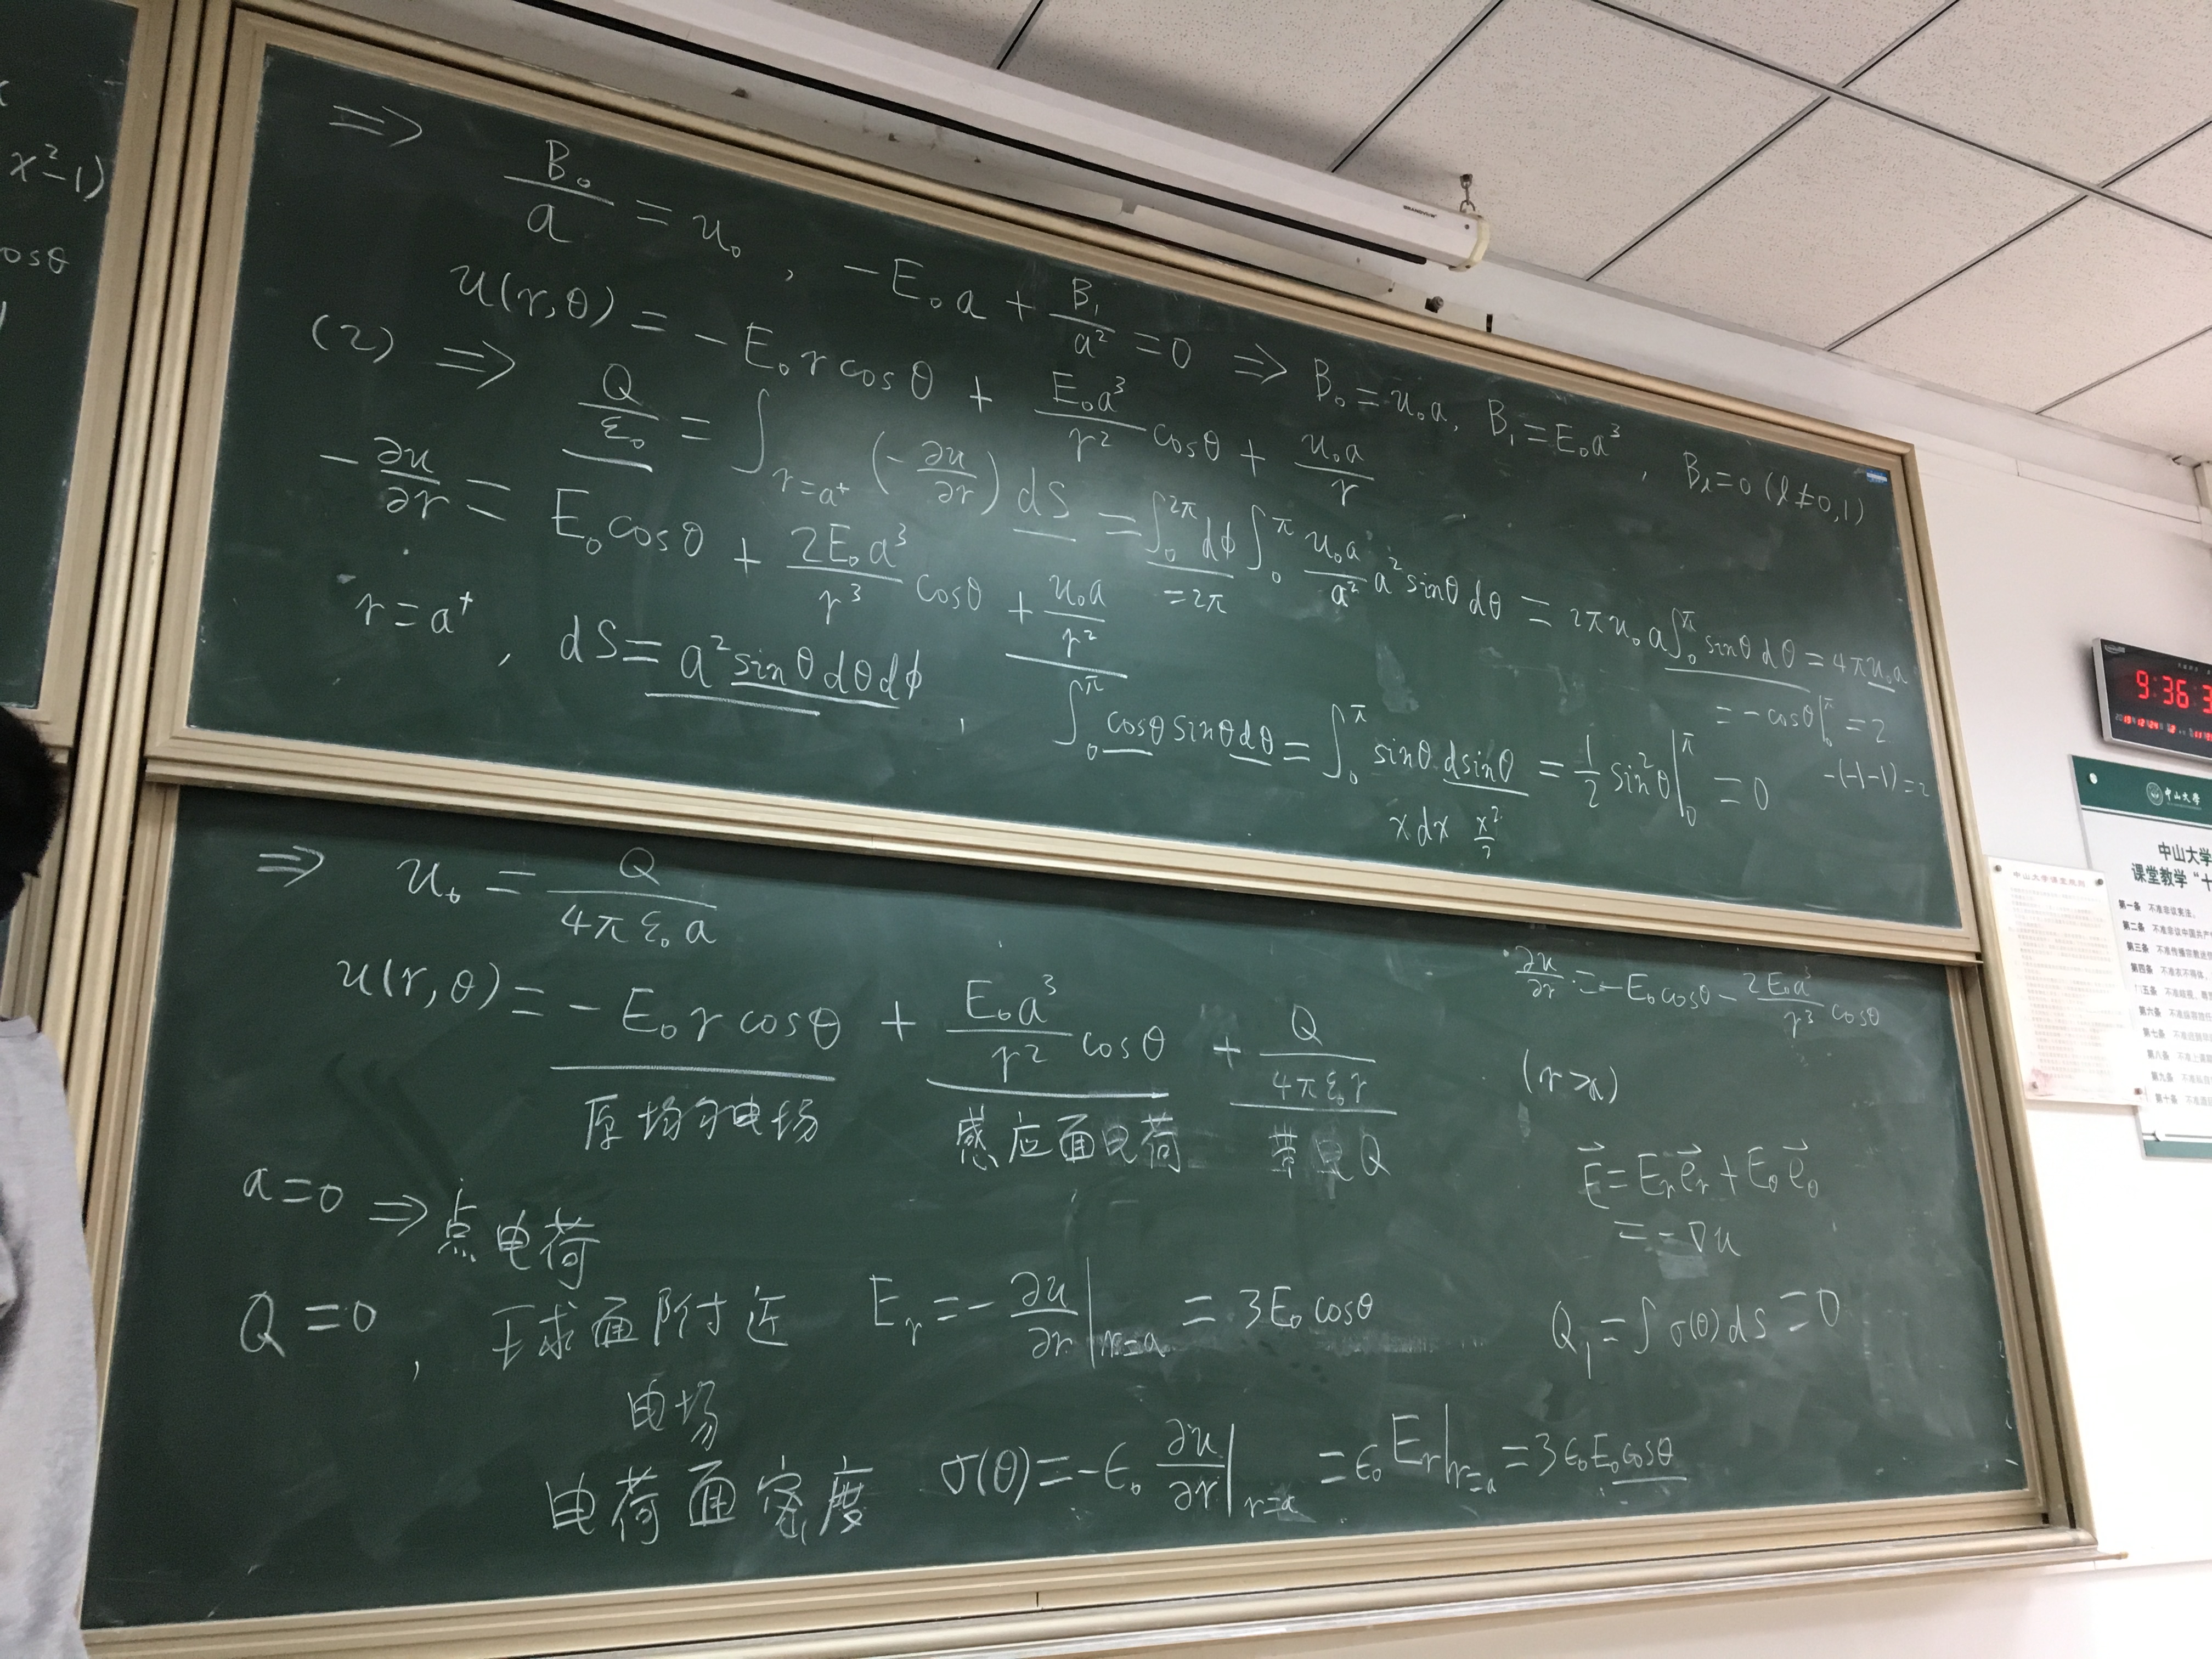 x²-1)
osθ
⇒ B₀/a = u₀ , -E₀a + B₁/a² = 0 ⇒ B₀ = u₀a, B₁ = E₀a³ , Bₗ = 0 (l≠0,1)
u(r,θ) = -E₀rcosθ + E₀a³/r² cosθ + u₀a/r
(2) ⇒ Q/ε₀ = ∫_{r=a⁺} (-∂u/∂r) dS = ∫₀^{2π} dφ ∫₀^π u₀a/a² a² sinθ dθ = 2πu₀a ∫₀^π sinθ dθ = 4πu₀a
= 2π
= -cosθ|₀^π = 2
-(-1-1) = 2
-∂u/∂r = E₀cosθ + 2E₀a³/r³ cosθ + u₀a/r²
r=a⁺ , dS = a² sinθ dθ dφ , ∫₀^π cosθ sinθ dθ = ∫₀^π sinθ dsinθ = 1/2 sin²θ|₀^π = 0
x dx x²/2
⇒ u₀ = Q/4πε₀a
∂u/∂r = -E₀cosθ - 2E₀a³/r³ cosθ
u(r,θ) = -E₀rcosθ + E₀a³/r² cosθ + Q/4πε₀r (r>a)
原均匀电场 感应面电荷 带电Q
E⃗ = E_r e⃗_r + E_θ e⃗_θ
= -∇u
a=0 ⇒ 点电荷
Q=0 , 球面附近 E_r = -∂u/∂r|_{r=a} = 3E₀cosθ
电场
Q₁ = ∫σ(θ)dS = 0
电荷面密度 σ(θ) = -ε₀ ∂u/∂r|_{r=a} = ε₀E_r|_{r=a} = 3ε₀E₀cosθ
9:36:3
中山大学
中山大学
课堂教学“十
第一条 不准非议宪法,
第二条 不准非议中国共产
第三条
第四条 不准衣不得体,
第五条
第六条
第七条
第八条
第九条
第十条
中山大学课堂规则